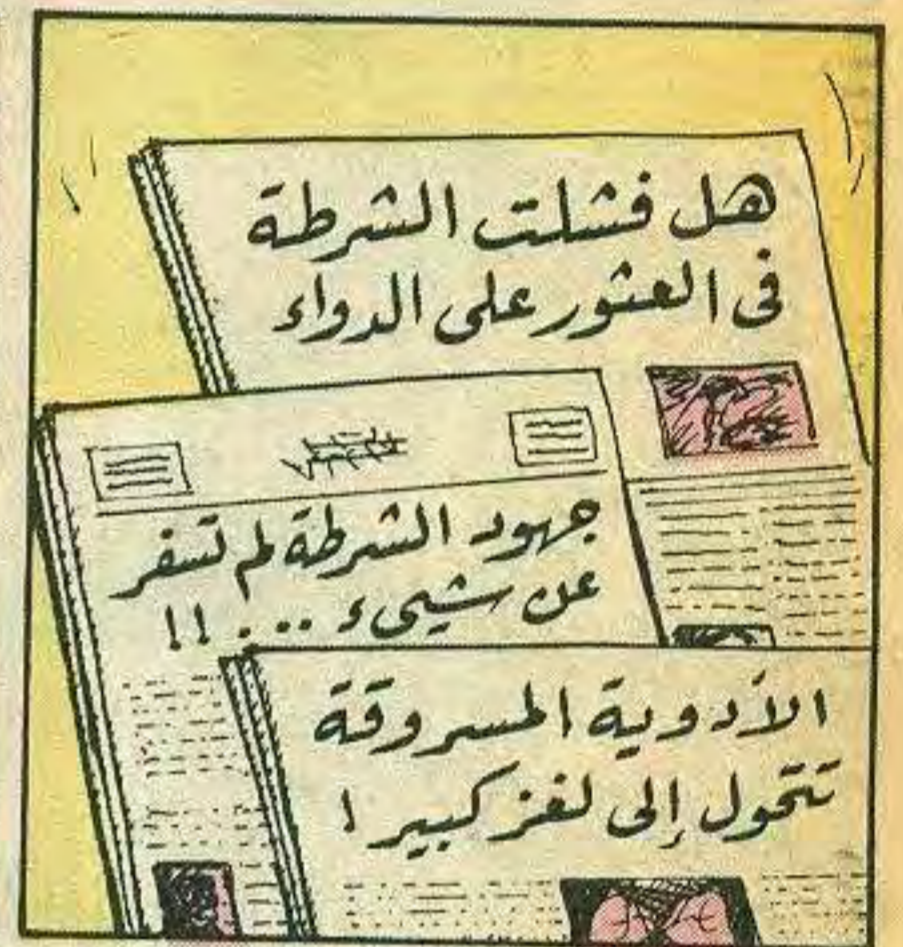 هل فشلت الشرطة
فى العثور على الدواء
جهود الشرطة لم تسفر
عن شيىء ...!!
الأدوية المسروقة
تتحول إلى لغز كبير !